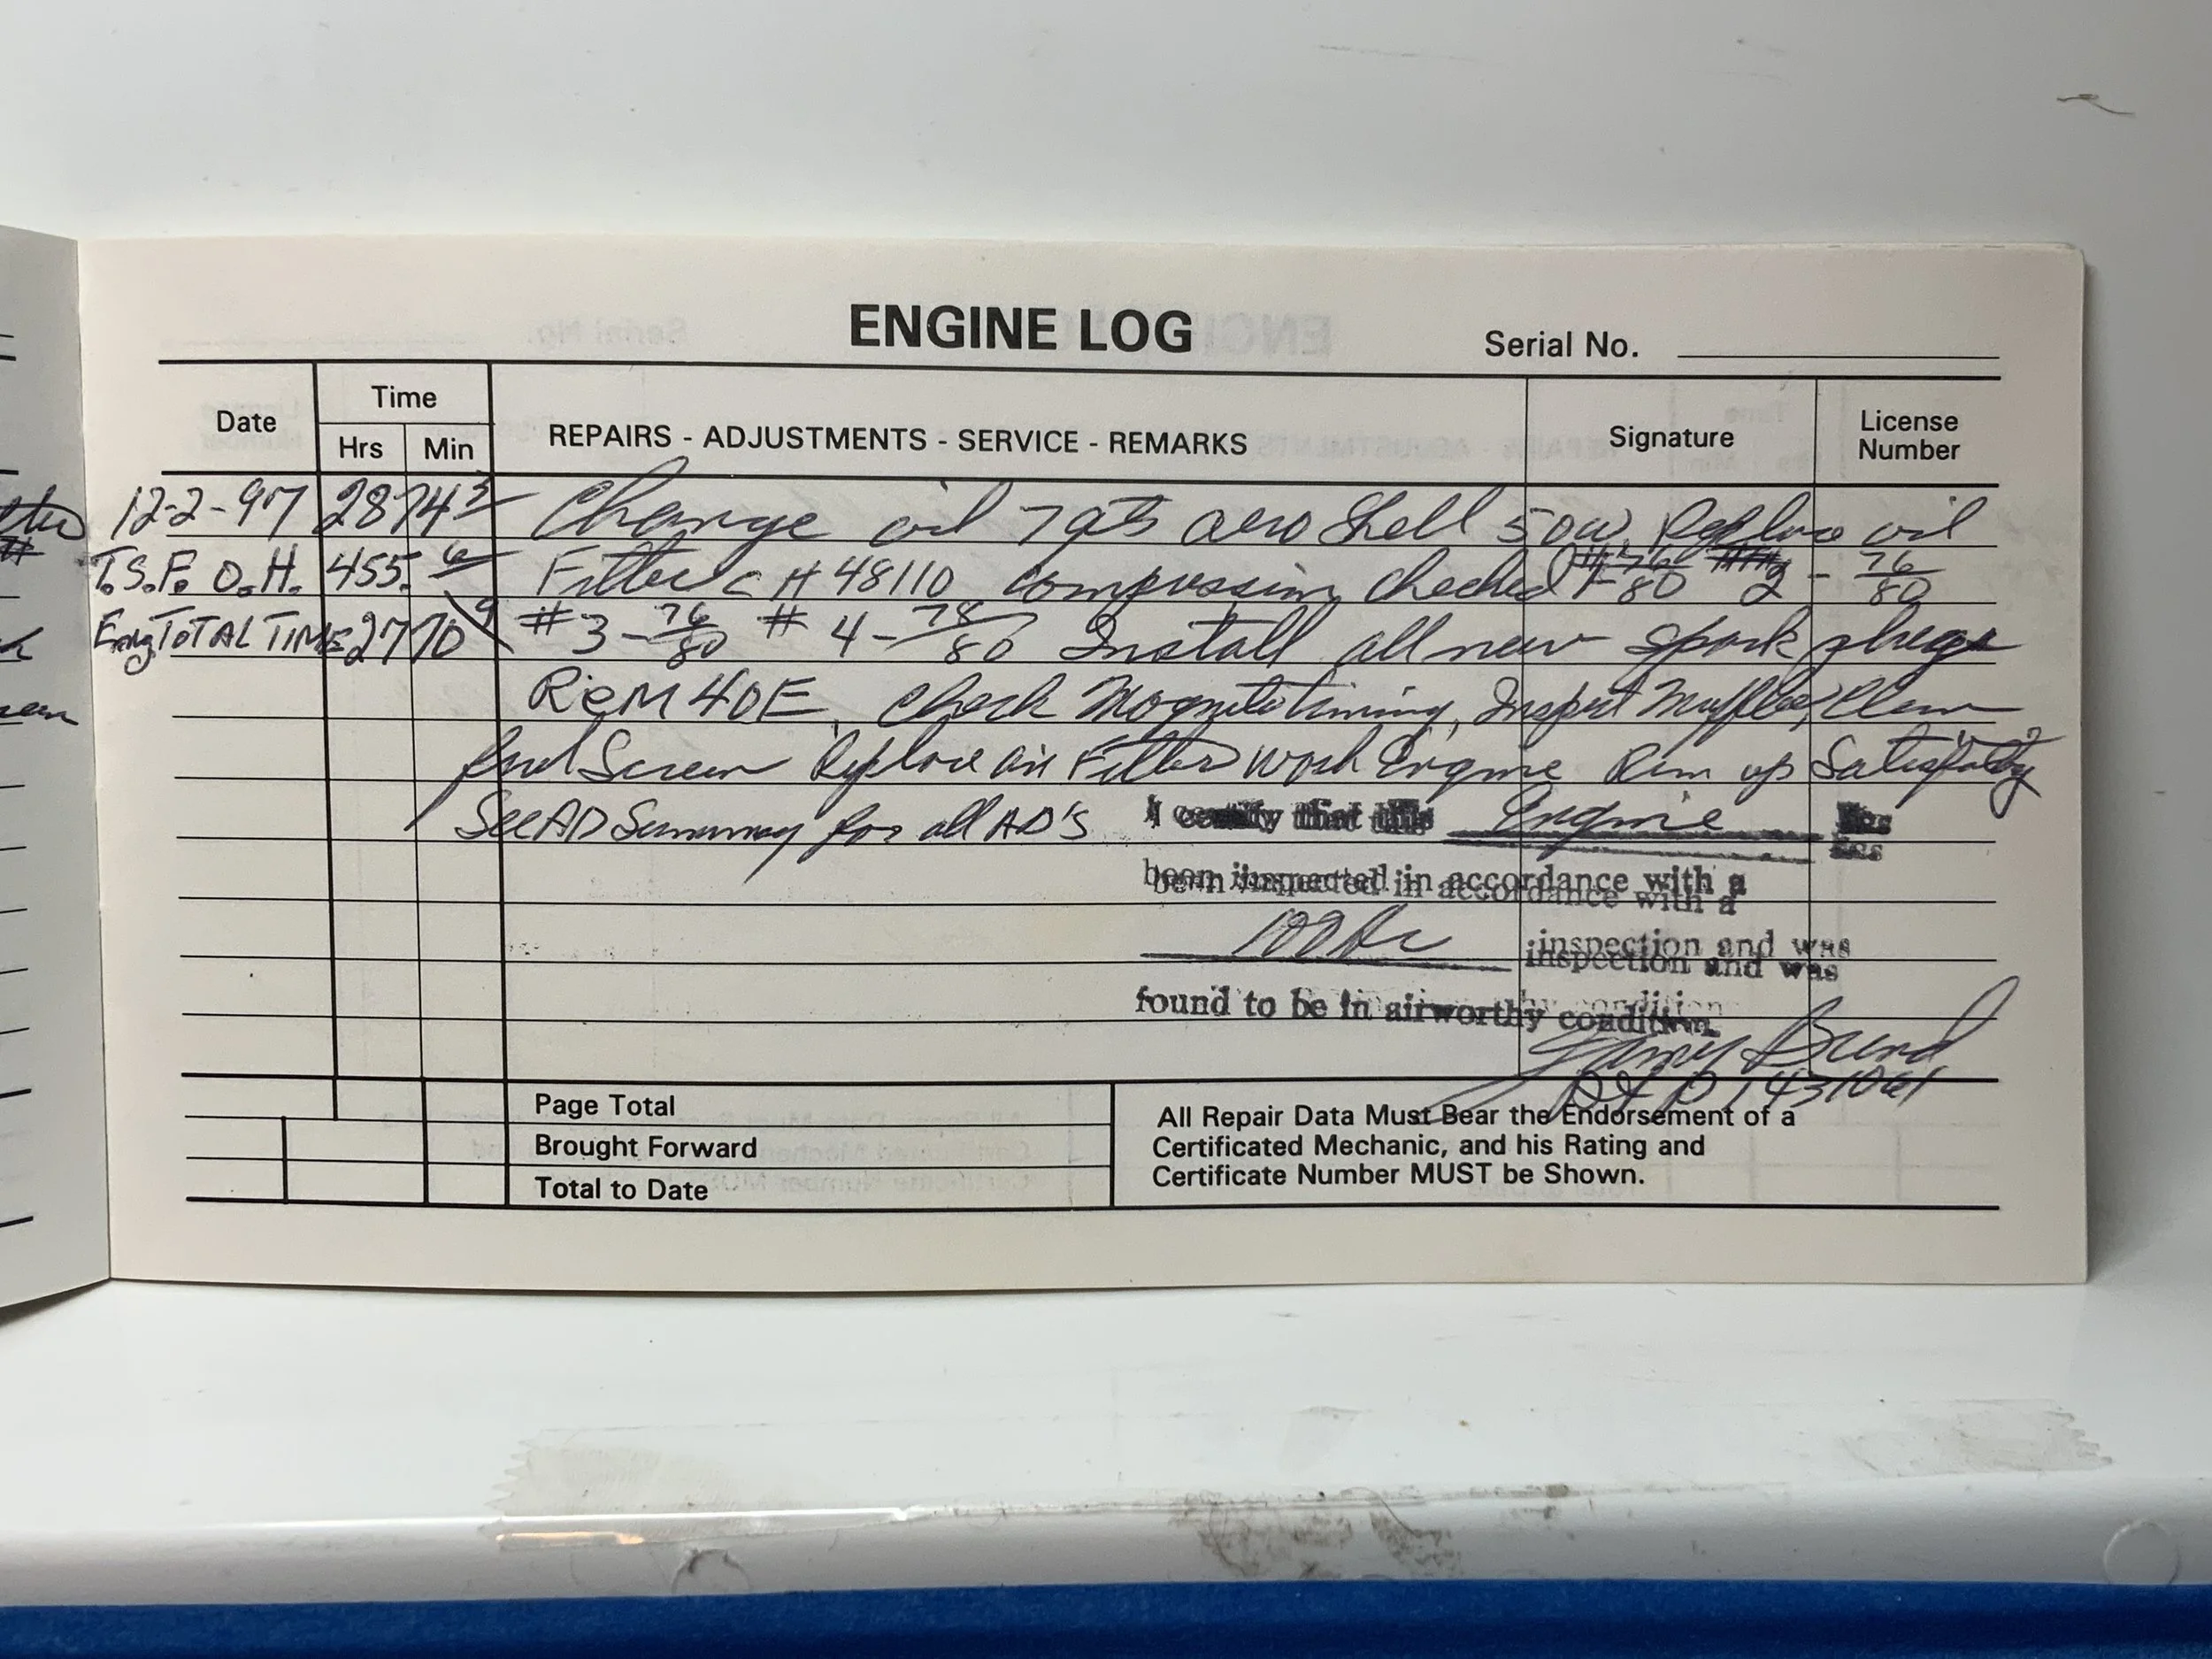 ENGINE LOG
Serial No.
Date
Time
Hrs
Min
REPAIRS - ADJUSTMENTS - SERVICE - REMARKS
Signature
License
Number
12-2-97 2874 5 Change oil 7qts aero Shell 50w. Replace oil
T.S.P. O.H. 455. 6 Filter CH48110 compression checked #1-76/80 2-76/80
Eng TOTAL TIME 2770 9 #3-76/80 #4-78/80 Install all new spark plugs
ReM40E. Check Magneto timing, Inspect Muffler, Clean
fuel Screen Replace air Filter wash Engine Run up
See AD Summary for all AD's
I certify that this Engine has
been inspected in accordance with a
100 Hr inspection and was
found to be in airworthy condition.
1431061
Page Total
Brought Forward
Total to Date
All Repair Data Must Bear the Endorsement of a
Certificated Mechanic, and his Rating and
Certificate Number MUST be Shown.